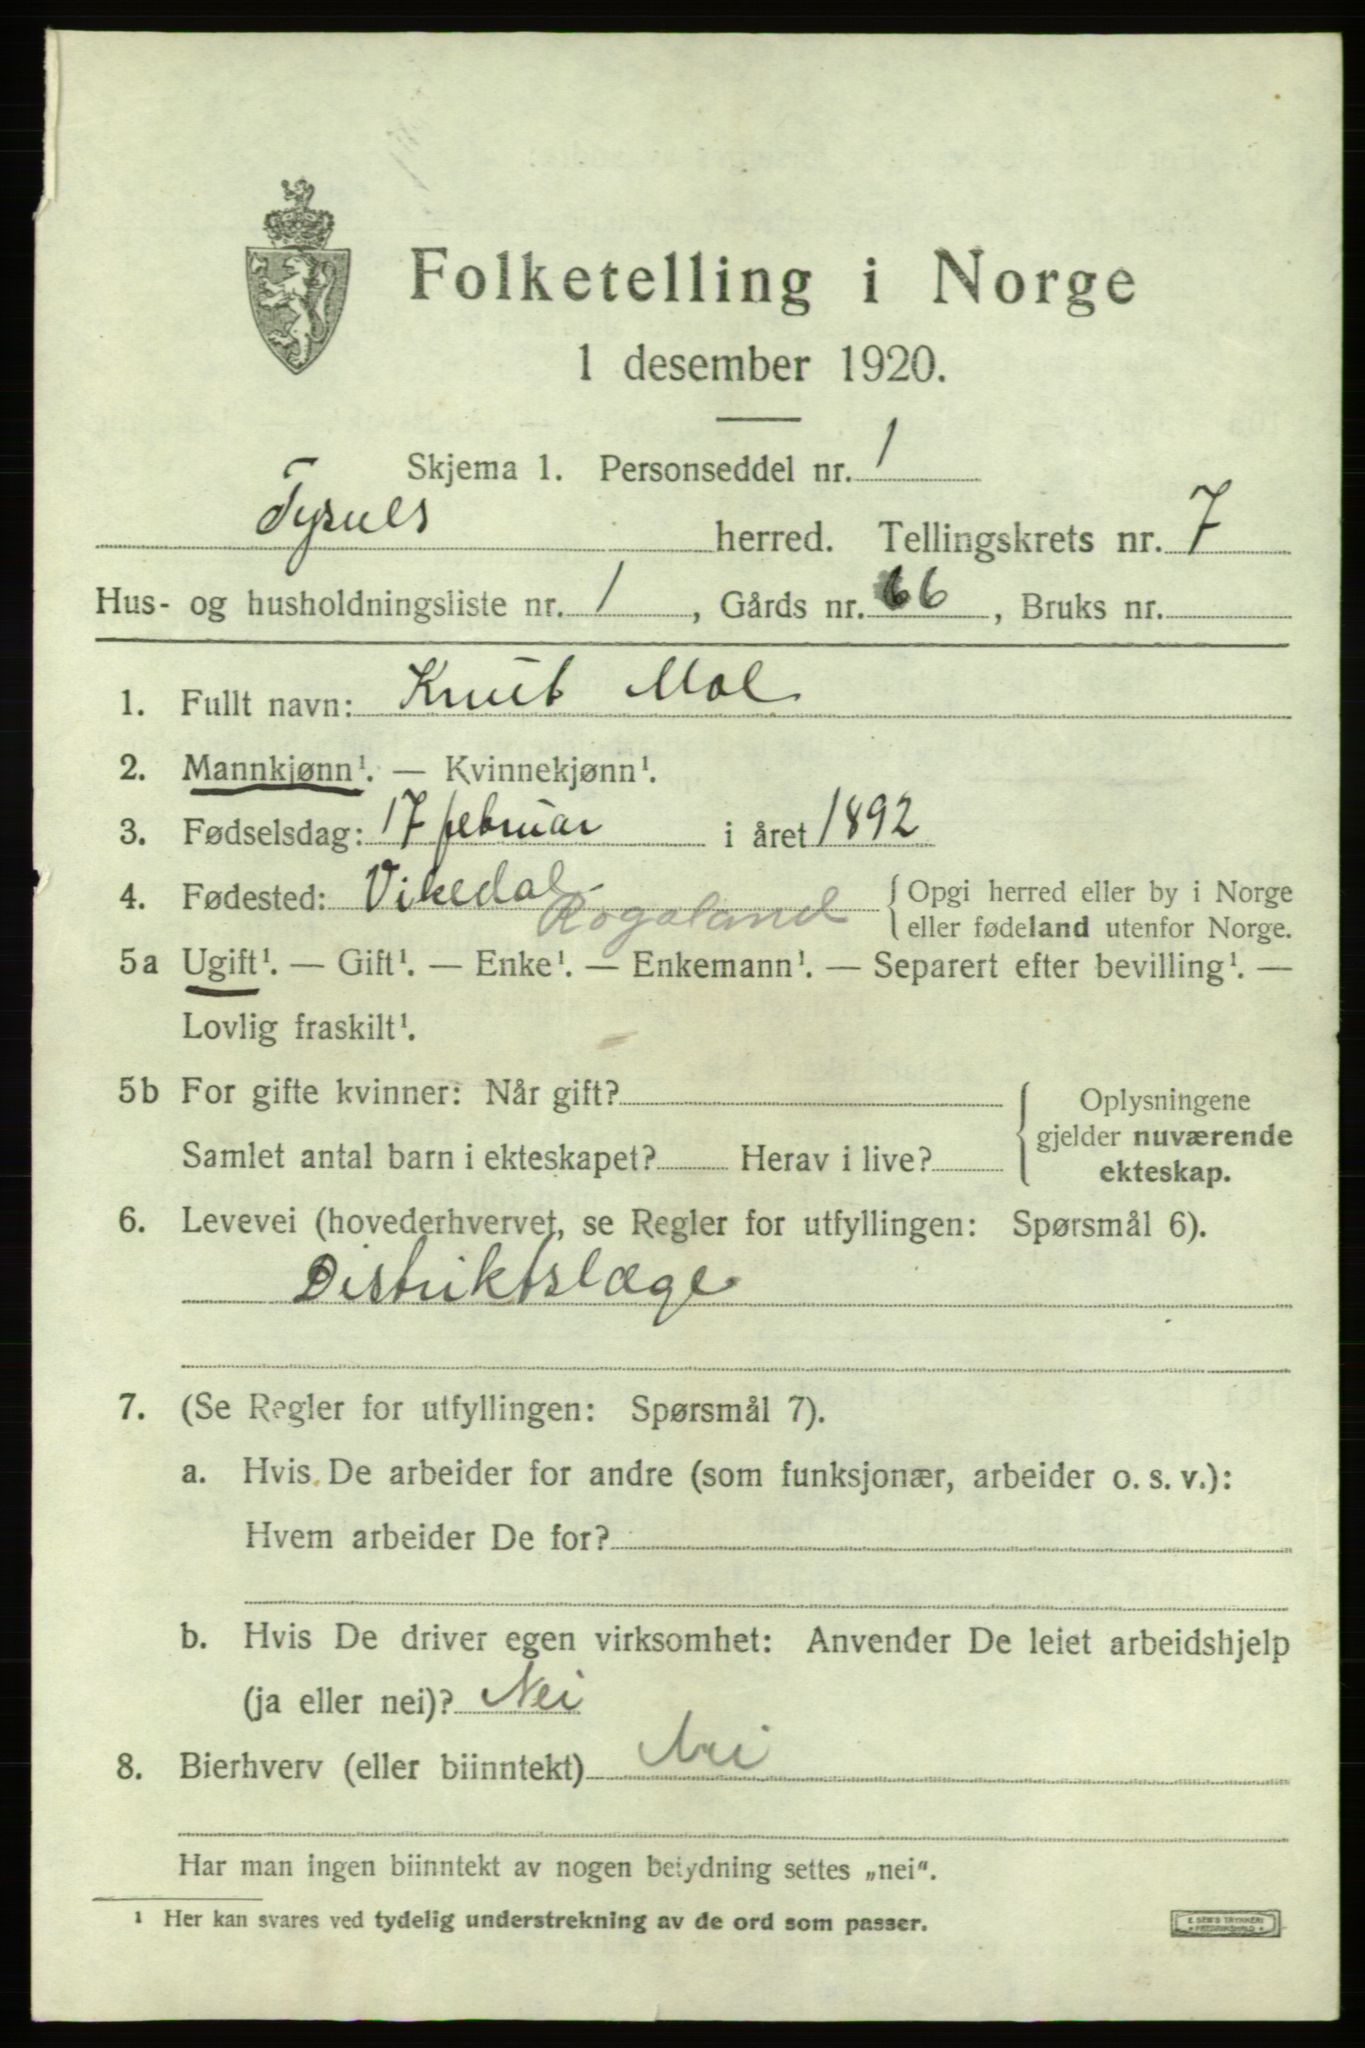 Folketelling i Norge
1 desember 1920.
Skjema 1. Personseddel nr. 1
Tysnes herred. Tellingskrets nr. 7
Hus- og husholdningsliste nr. 1, Gårds nr. 66, Bruks nr.
1. Fullt navn: Knut Moe
2. Mannkjønn¹. — Kvinnekjønn¹.
3. Fødselsdag: 17 februar i året 1892
4. Fødested: Vikedal Rogaland {Opgi herred eller by i Norge
eller fødeland utenfor Norge.
5a Ugift¹. — Gift¹. — Enke¹. — Enkemann¹. — Separert efter bevilling¹. —
Lovlig fraskilt¹.
5b For gifte kvinner: Når gift? Oplysningene
gjelder nuværende
Samlet antal barn i ekteskapet? Herav i live? ekteskap.
6. Levevei (hovederhvervet, se Regler for utfyllingen: Spørsmål 6).
Distriktslæge
7. (Se Regler for utfyllingen: Spørsmål 7).
a. Hvis De arbeider for andre (som funksjonær, arbeider o. s. v.):
Hvem arbeider De for?
b. Hvis De driver egen virksomhet: Anvender De leiet arbeidshjelp
(ja eller nei)? Nei
8. Bierhverv (eller biinntekt) Nei
Har man ingen biinntekt av nogen betydning settes „nei“.
¹ Her kan svares ved tydelig understrekning av de ord som passer.